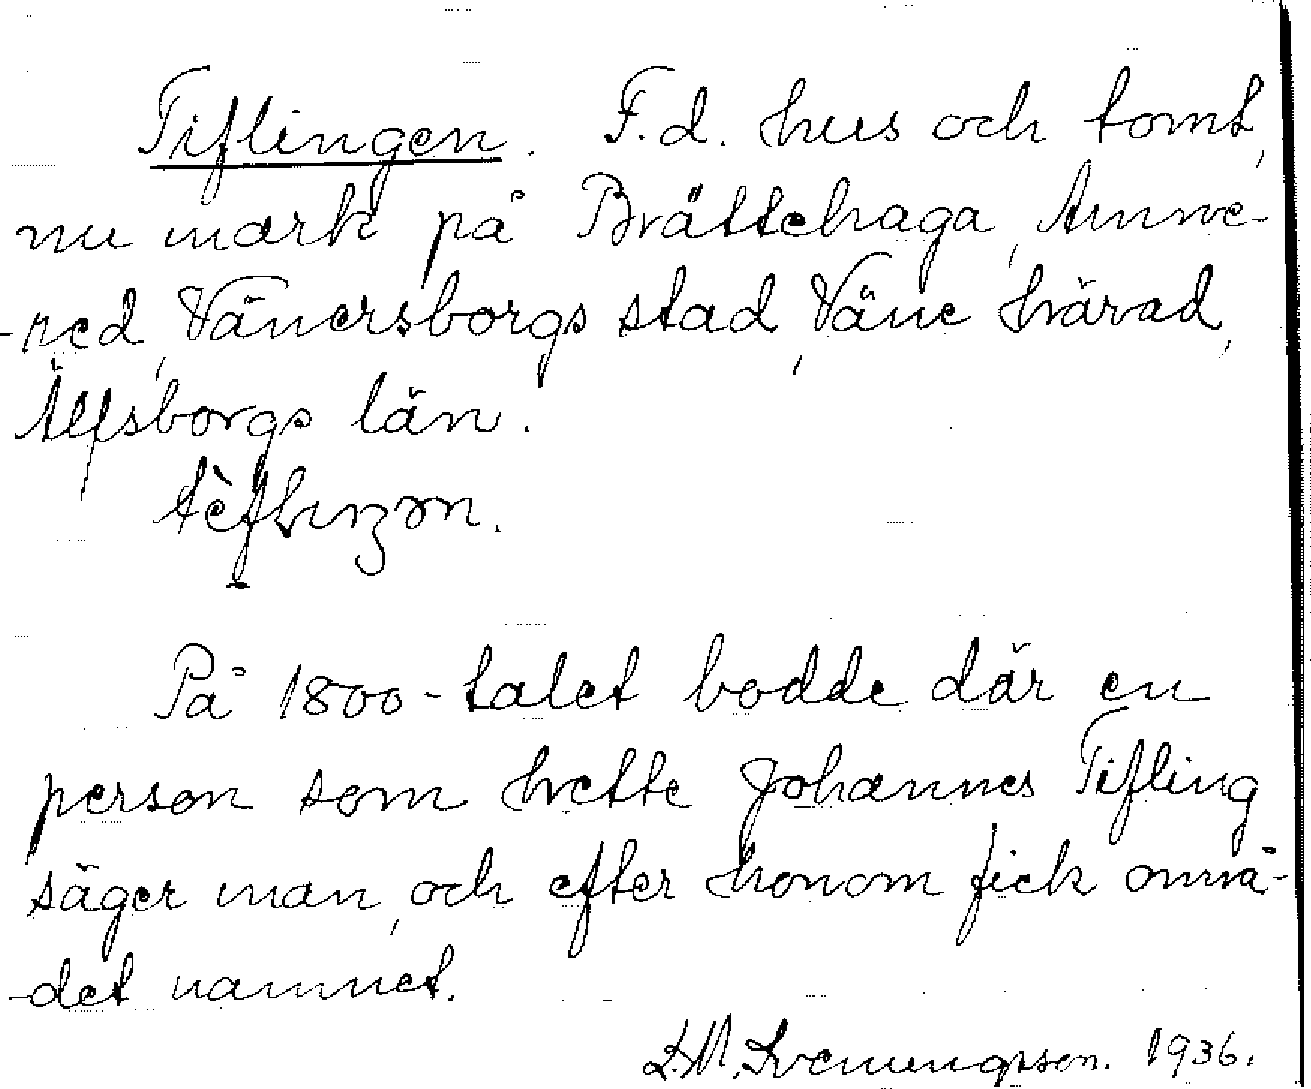 Tiflingen. F.d. hus och tomt,
nu mark på Brättehaga, Aunne-
-red, Vänersborgs stad, Väne härad,
Älfsborgs län.
På 1800-talet bodde där en
person som hette Johannes Tifling
säger man, och efter honom fick områ-
-det namnet.
L.M. Svenungsson. 1936.